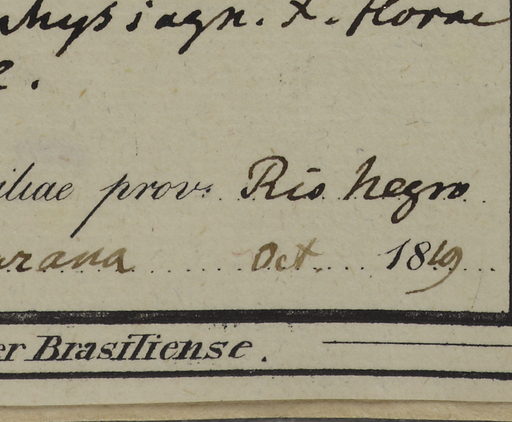 physiagn. t. Horae
e.
iliae prov. Rio negro
arana Oct. 1819
er Brasiliense.